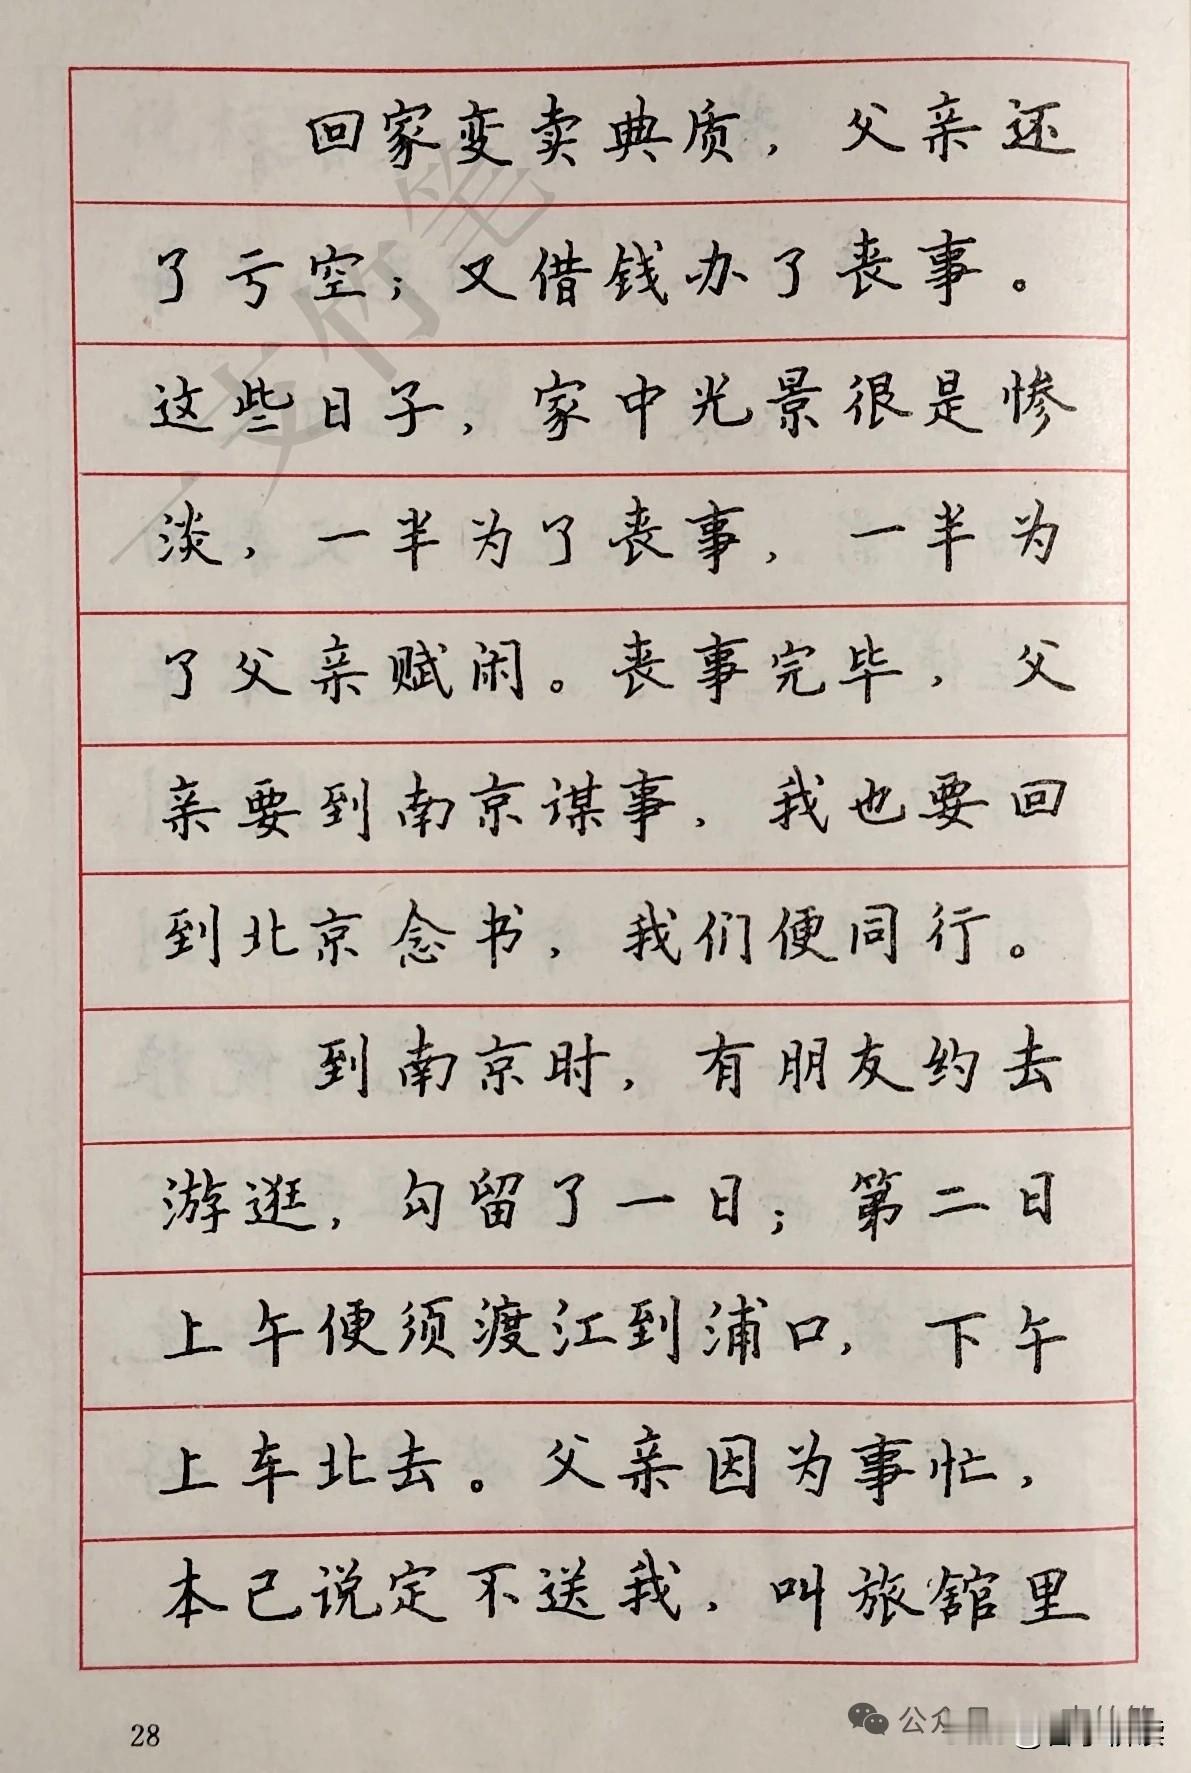 回家变卖典质，父亲还
了亏空；又借钱办了丧事。
这些日子，家中光景很是惨
淡，一半为了丧事，一半为
了父亲赋闲。丧事完毕，父
亲要到南京谋事，我也要回
到北京念书，我们便同行。
到南京时，有朋友约去
游逛，勾留了一日；第二日
上午便须渡江到浦口，下午
上车北去。父亲因为事忙，
本已说定不送我，叫旅舘里
28
一支竹笔
公众